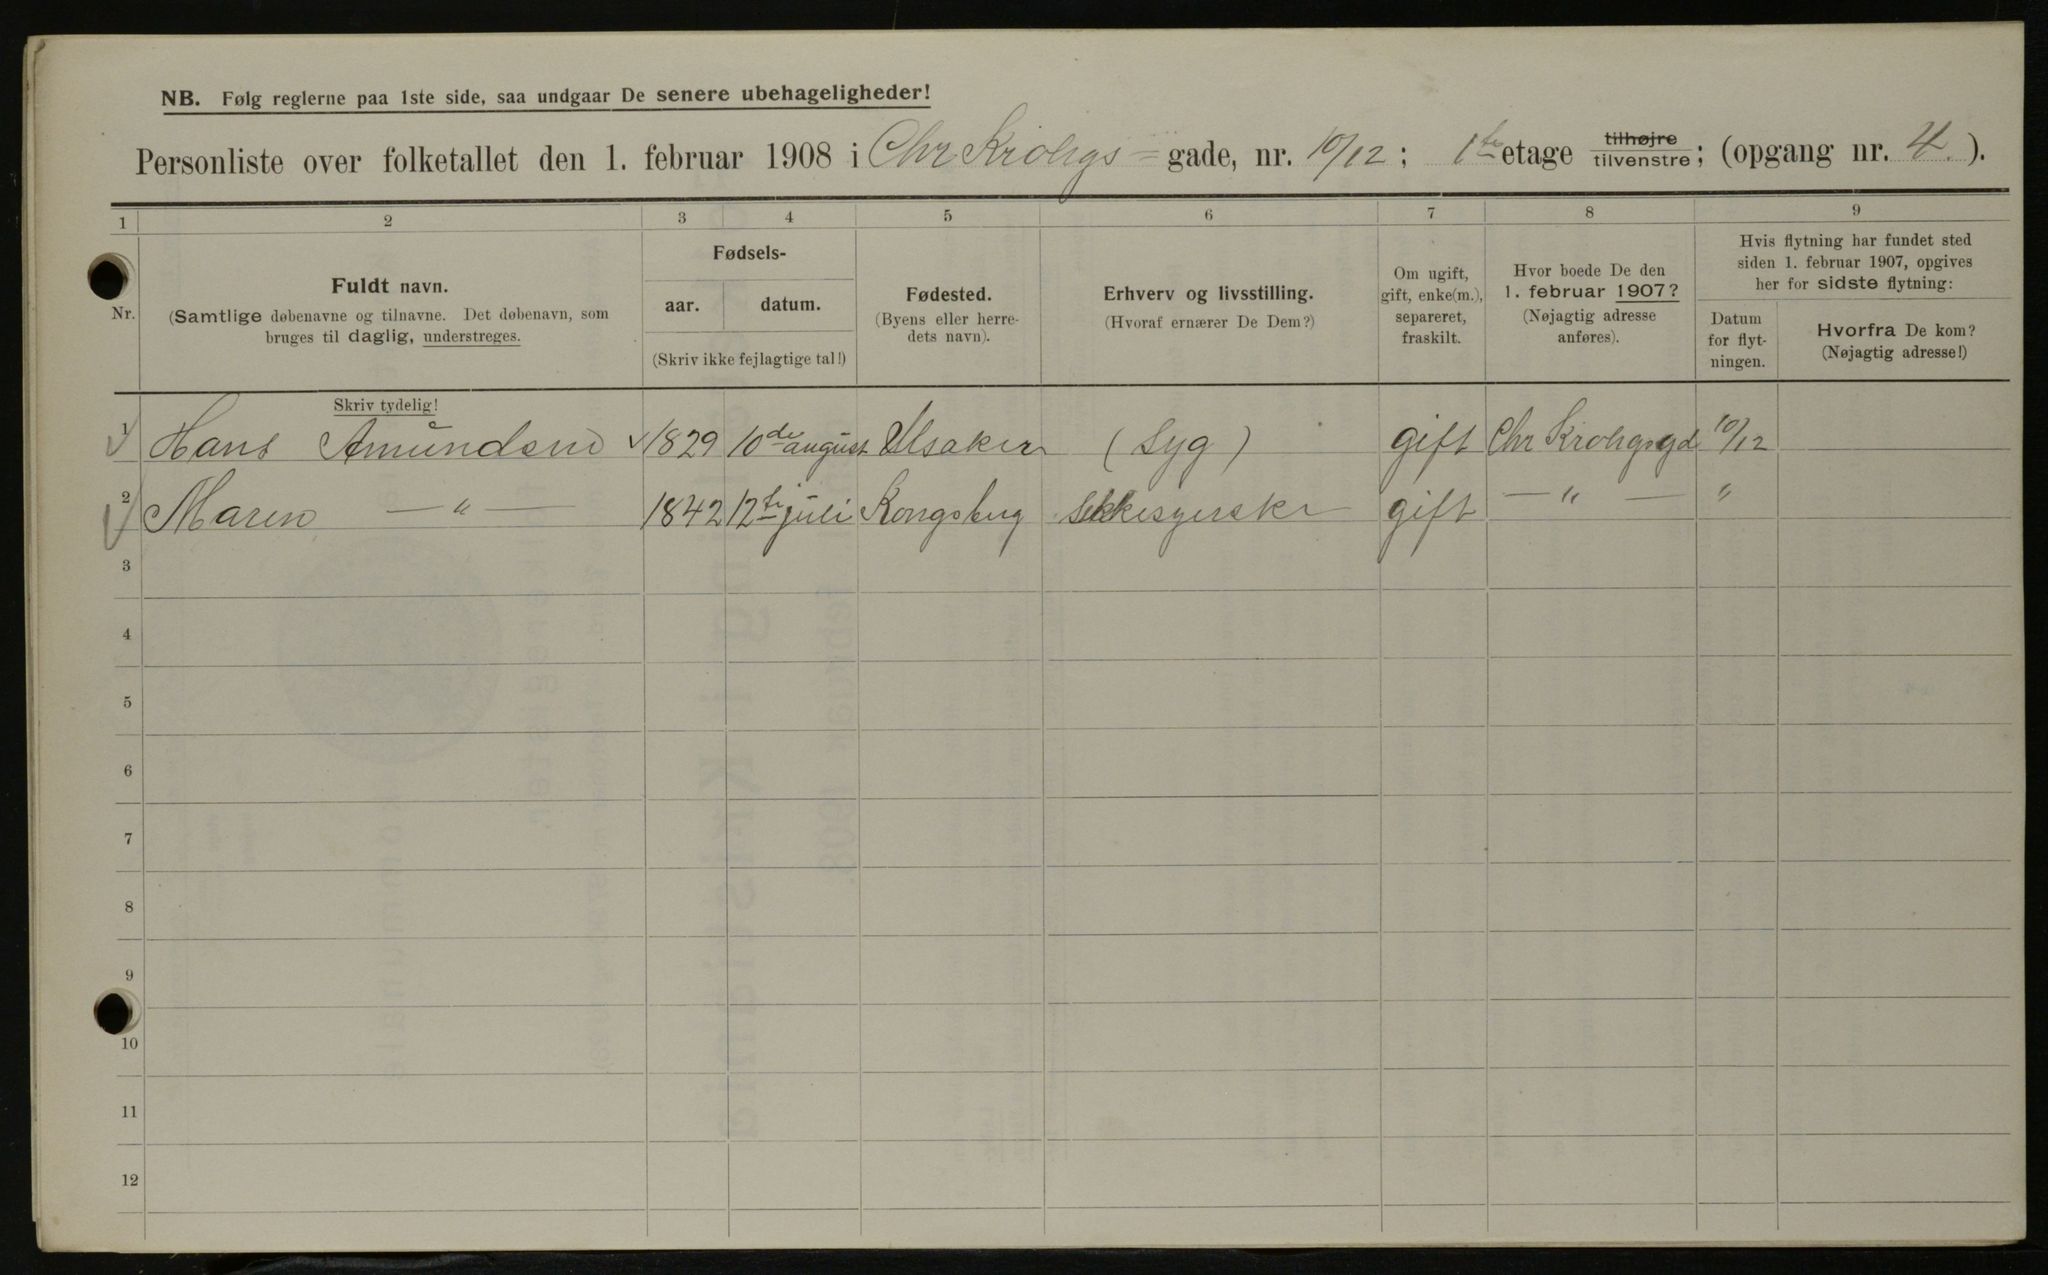 NB. Følg reglerne paa 1ste side, saa undgaar De senere ubehageligheder!
Personliste over folketallet den 1. februar 1908 i Chr Krohgs = gade, nr. 10/12; 1ste etage tilhøjre tilvenstre; (opgang nr. 4.).
1 2 3 4 5 6 7 8 9
Nr.
Fuldt navn.
(Samtlige døbenavne og tilnavne. Det døbenavn, som
bruges til daglig, understreges.
Skriv tydelig!
Fødsels-
aar. datum.
(Skriv ikke fejlagtige tal!)
Fødested.
(Byens eller herre-
dets navn).
Erhverv og livsstilling.
(Hvoraf ernærer De Dem?)
Om ugift,
gift, enke(m.),
separeret,
fraskilt.
Hvor boede De den
1. februar 1907?
(Nøjagtig adresse
anføres).
Hvis flytning har fundet sted
siden 1. februar 1907, opgives
her for sidste flytning:
Datum
for flyt-
ningen.
Hvorfra De kom?
(Nøjagtig adresse!)
1 Hans Amundsen 1829 10de august (Syg) gift Chr Krohgsgd 10/12
2 Maren — " — 1842 12te juli Kongsberg gift — " — "
3
4
5
6
7
8
9
10
11
12